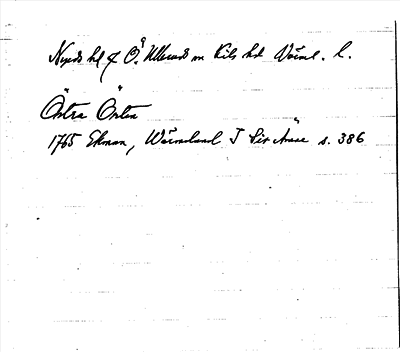 Nyeds hd & Ö. Ullerud sn Kils hd Värml. l.
Östra Örten
1765 Ekman, Wärmeland I s. 386